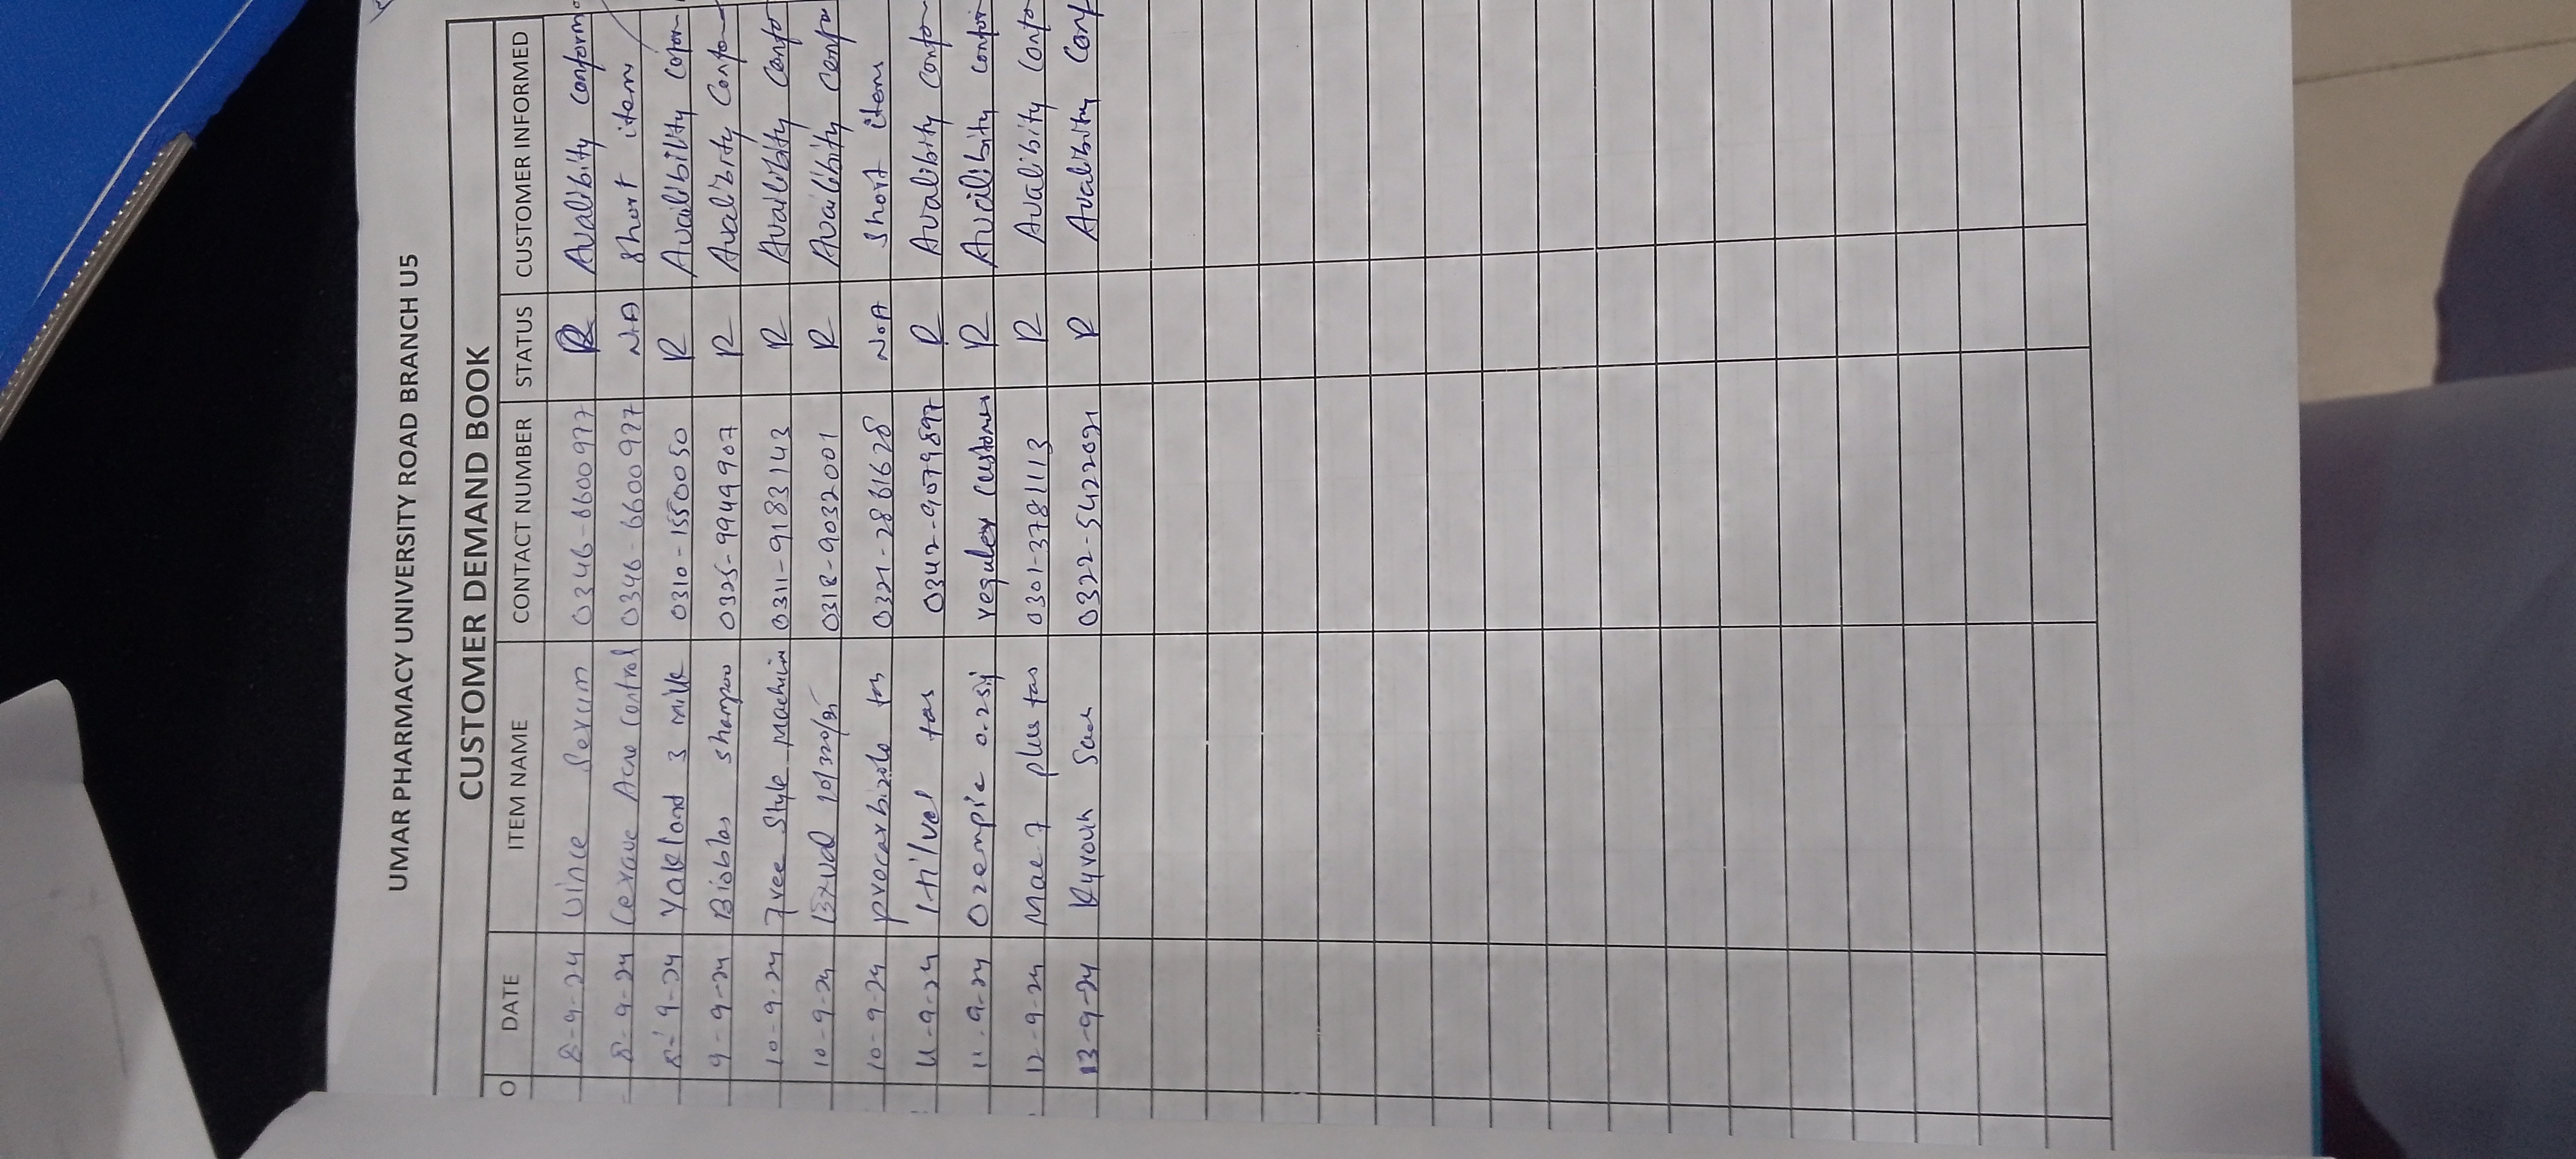 UMAR PHARMACY UNIVERSITY ROAD BRANCH U5
CUSTOMER DEMAND BOOK
O DATE ITEM NAME CONTACT NUMBER STATUS CUSTOMER INFORMED
8-9-24 Vince Serum 0346-6600977 R Avalibity conform
8-9-24 Cerave Acne Control 0346-6600977 N.A Short item
8-9-24 Yakland 3 milk 0310-1550050 R Availibility
9-9-24 Bioblas shampoo 0325-9949907 R Avalibity
10-9-24 Free Style machin 0311-9183143 R Availibity Confo
10-9-24 10/320/25 0318-9032001 R Availibity Confo
10-9-24 0321-2861628 N.A Short item
11-9-24 tas 0342-9079897 R Avalibity Confor
11-9-24 Ozempic 0.25 regular customer R Availibity confor
12-9-24 plus tas 0301-3781113 R Avalibity Confo
13-9-24 0322-5422091 R Avalibity Conf